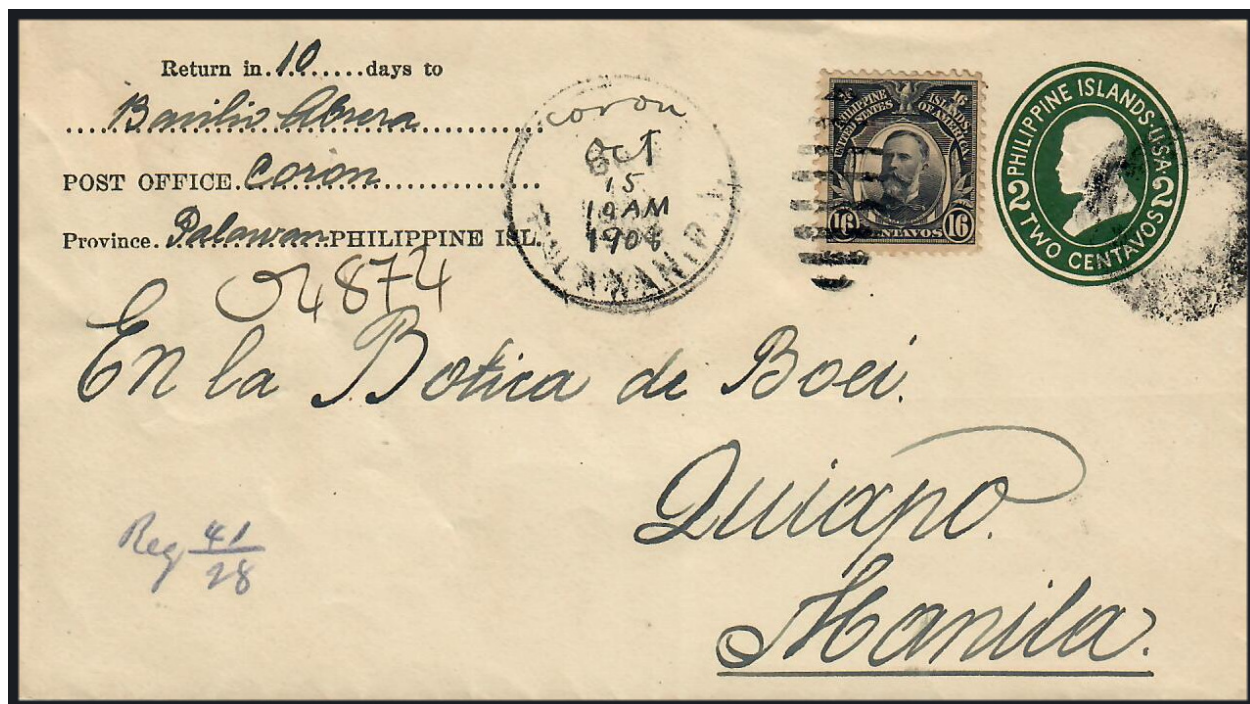 Return in 10 days to
Basilio Abrera
POST OFFICE Coron
Province. Palawan PHILIPPINE ISL.
coron
OCT
15
10 AM
1908
PALAWAN P.I.
PHILIPPINE ISLANDS
UNITED STATES OF AMERICA
16 CENTAVOS 16
PHILIPPINE ISLANDS·U.S.A.
2 TWO CENTAVOS 2
4874
En la Botica de Boei.
Quiapo.
Manila.
Reg 41/28